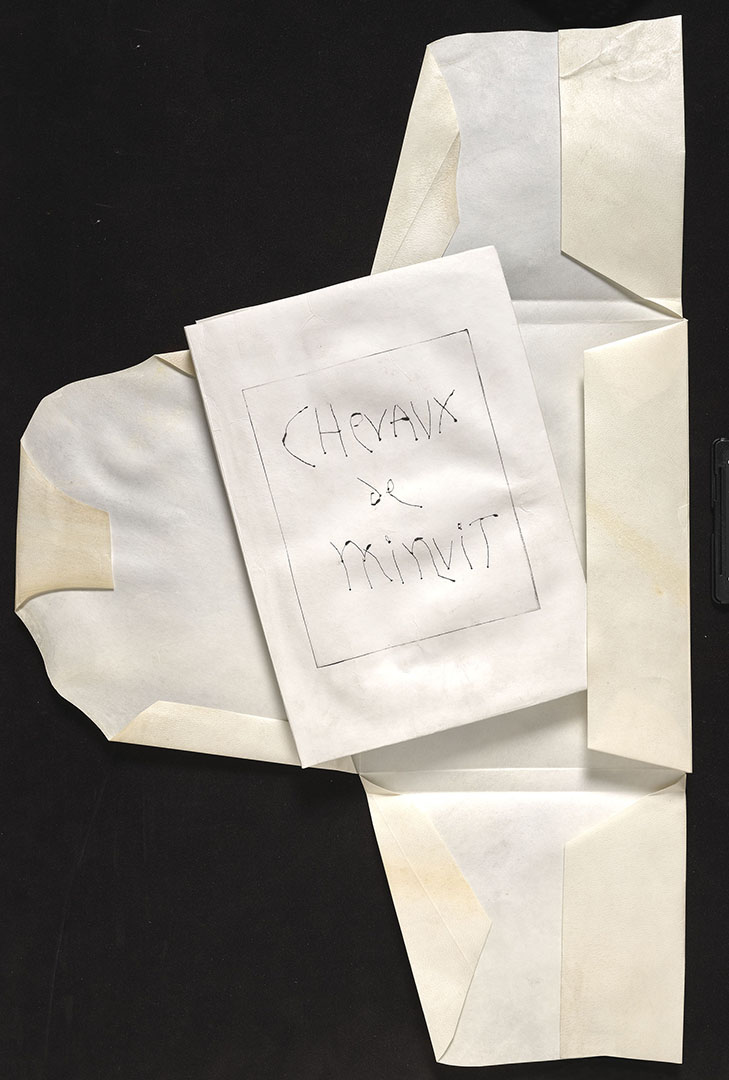 CHeVAUX
de
MiNUiT